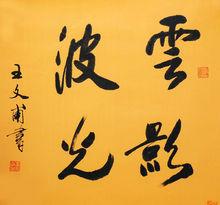 雲影
波光
王文甫書